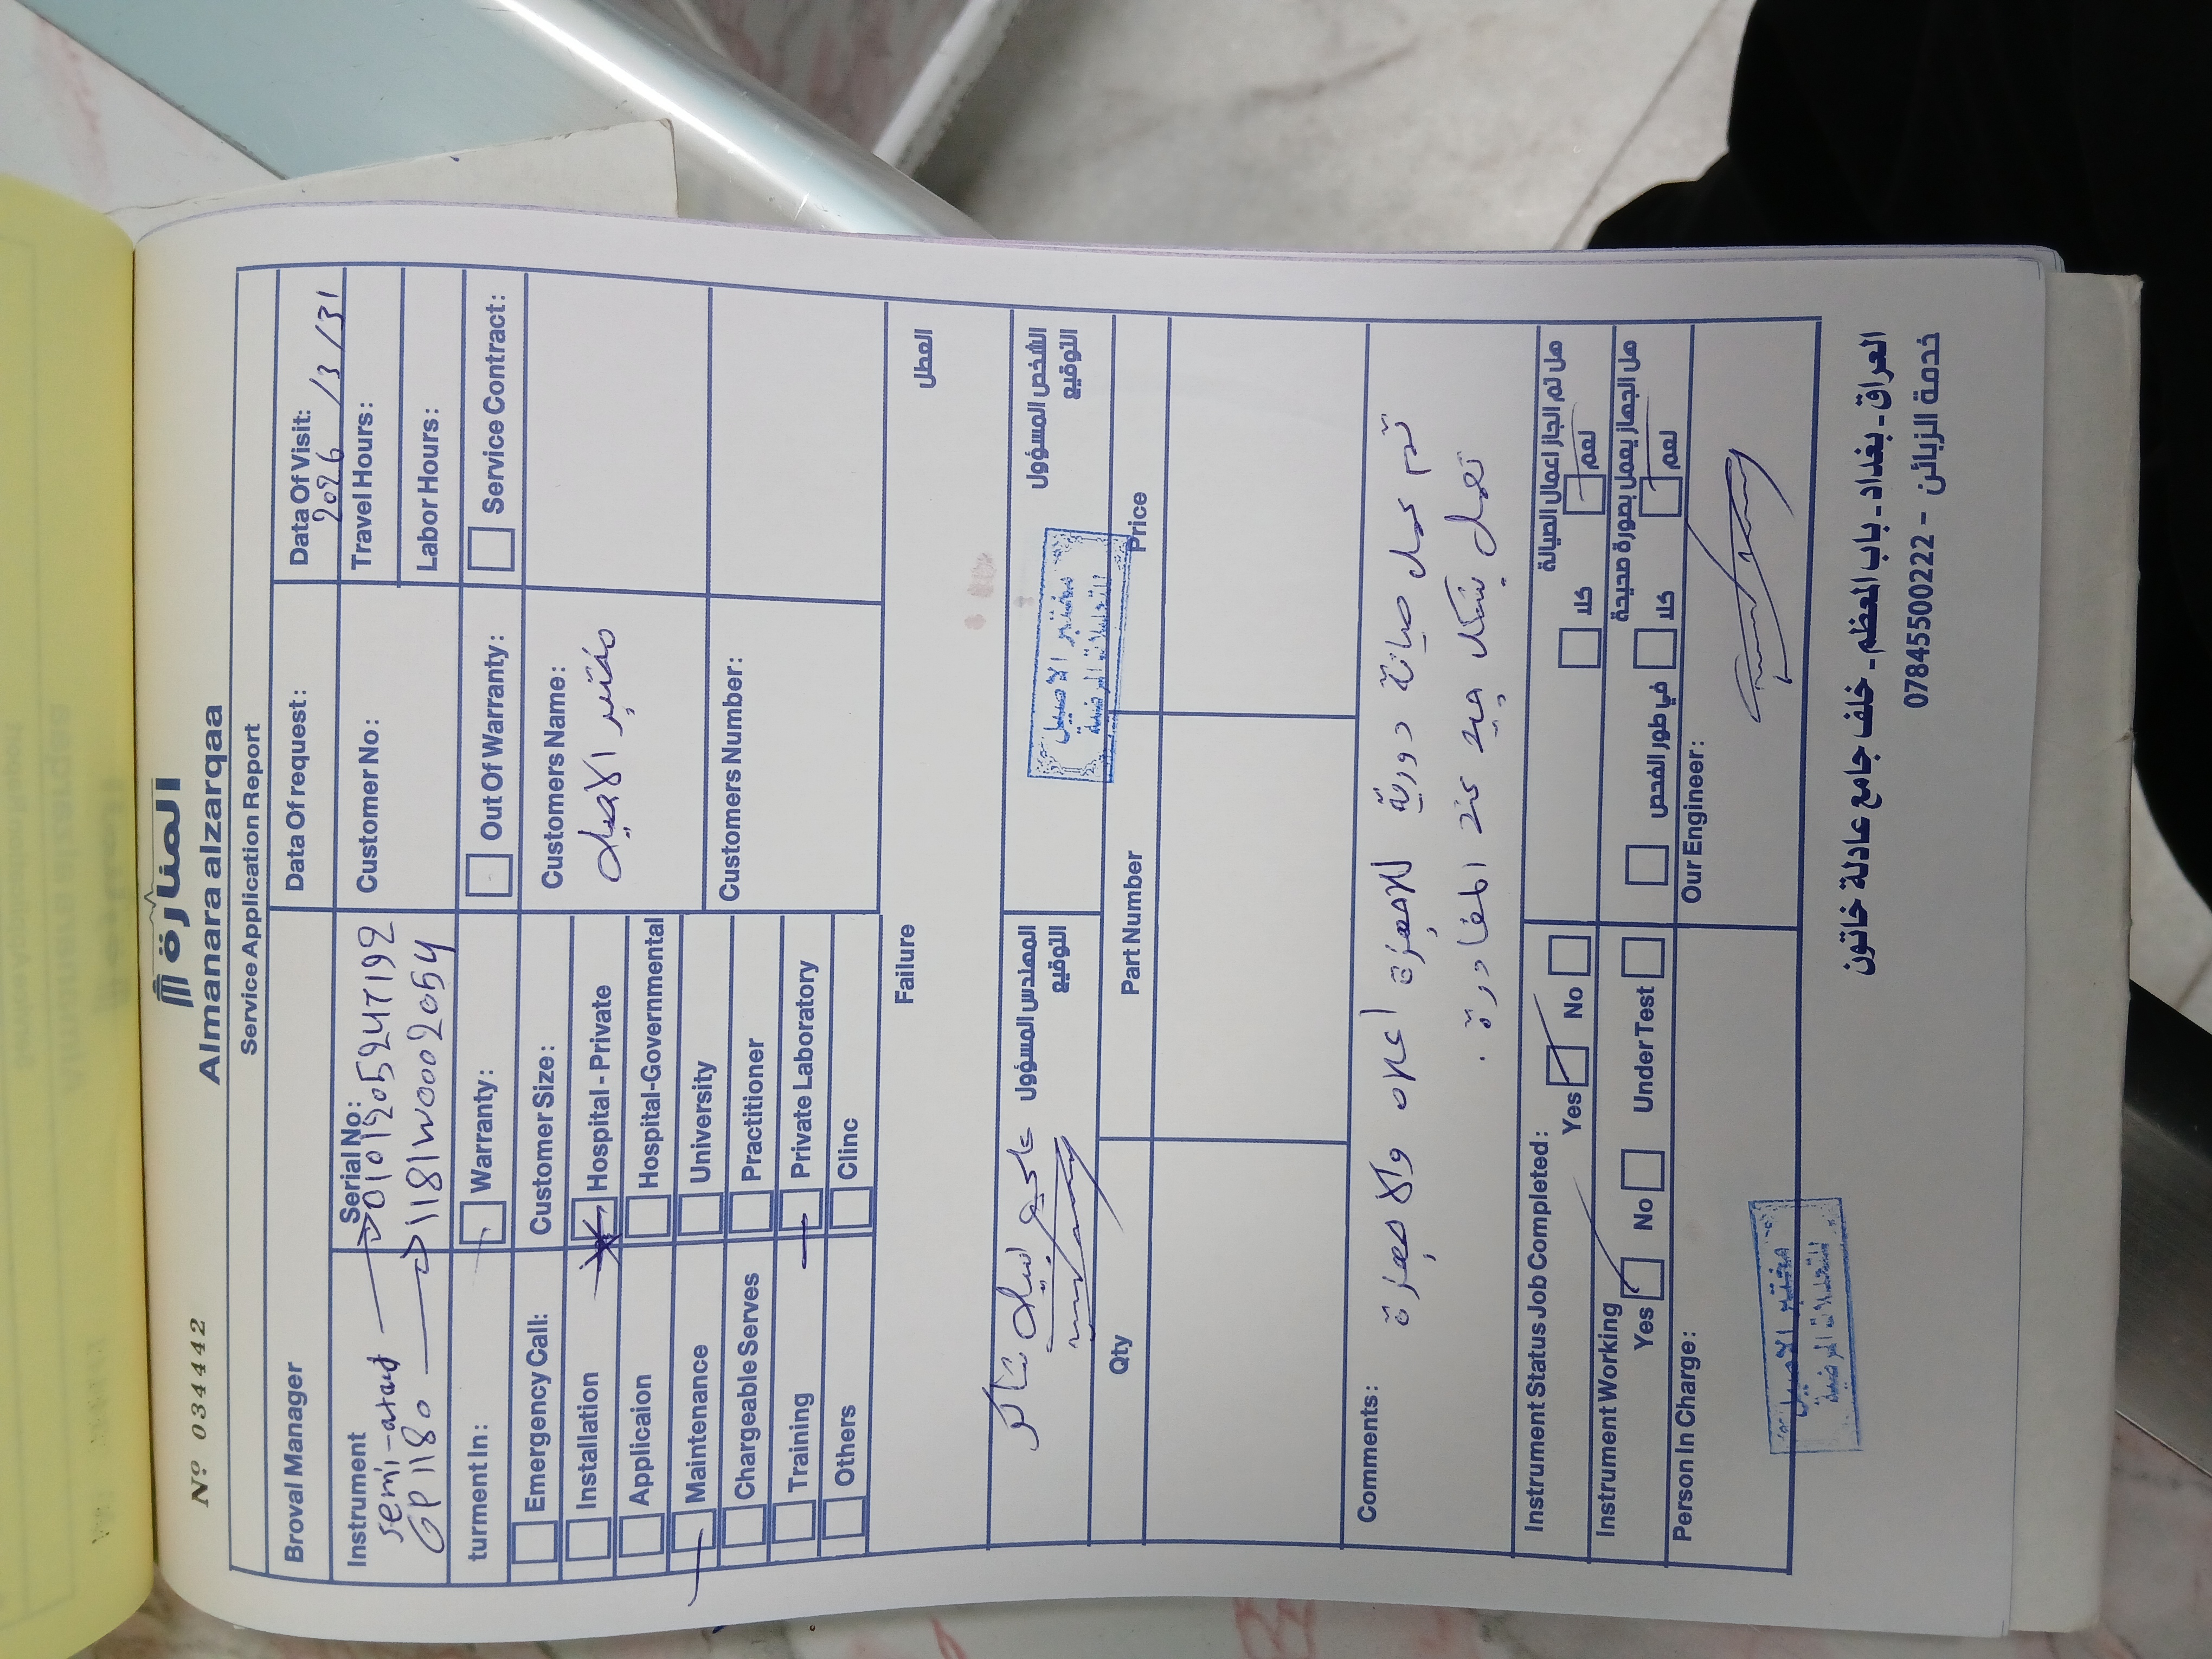 Nº 034442
المنارة
Almanara alzarqaa
Service Application Report
Broval Manager
Data Of request:
Data Of Visit:
2026/3/31
Instrument
Serial No:
Customer No:
Travel Hours:
semi-
GP 1180
1181W0002054
Labor Hours:
turment In:
Warranty:
Out Of Warranty:
Service Contract:
Emergency Call:
Customer Size:
Customers Name:
مختبر الاصيل
Installation
Hospital - Private
Applicaion
Hospital-Governmental
Maintenance
University
Customers Number:
Chargeable Serves
Practitioner
Training
Private Laboratory
Others
Clinc
Failure
العطل
المهندس المسؤول
التوقيع
الشخص المسؤول
التوقيع
مختبر الاصيل
للتحليلات المرضية
Qty
Part Number
Price
Comments:
تم عمل صيانة دورية للاجهزة اعلاه والاجهزة
تعمل بشكل جيد عند المغادرة .
Instrument Status Job Completed:
Yes
No
هل تم انجاز اعمال الصيانة
كلا
نعم
Instrument Working
Yes
No
Under Test
هل الجهاز يعمل بصورة صحيحة
في طور الفحص
كلا
نعم
Person In Charge:
Our Engineer:
مختبر الاصيل
للتحليلات المرضية
العراق - بغداد - باب المعظم - خلف جامع عادلة خاتون
خدمة الزبائن - 07845500222